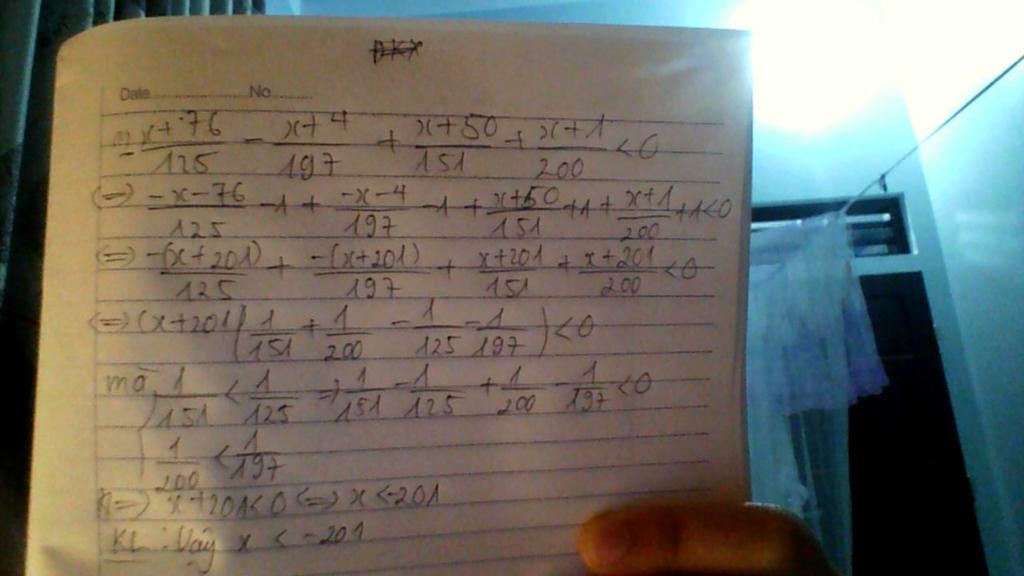 Date No
-\frac{x+76}{125} - \frac{x+4}{197} + \frac{x+50}{151} + \frac{x+1}{200} < 0
<=> \frac{-x-76}{125} -1 + \frac{-x-4}{197} -1 + \frac{x+50}{151} +1 + \frac{x+1}{200} +1 < 0
<=> \frac{-(x+201)}{125} + \frac{-(x+201)}{197} + \frac{x+201}{151} + \frac{x+201}{200} < 0
<=> (x+201) ( \frac{1}{151} + \frac{1}{200} - \frac{1}{125} - \frac{1}{197} ) < 0
mà \frac{1}{151} < \frac{1}{125} => \frac{1}{151} - \frac{1}{125} + \frac{1}{200} - \frac{1}{197} < 0
\frac{1}{200} < \frac{1}{197}
=> x+201 < 0 <=> x < -201
KL : Vậy x < -201